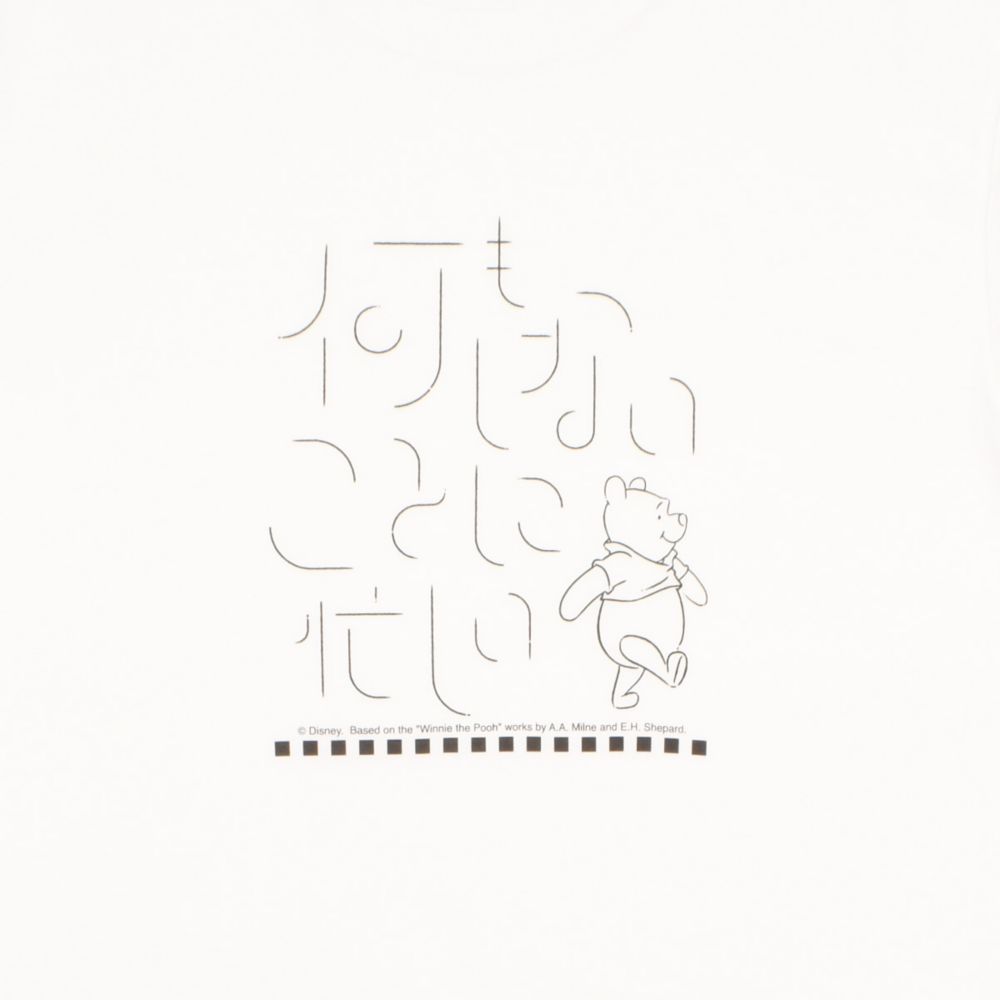 何もしない
ことに
忙しい
© Disney. Based on the "Winnie the Pooh" works by A.A. Milne and E.H. Shepard.